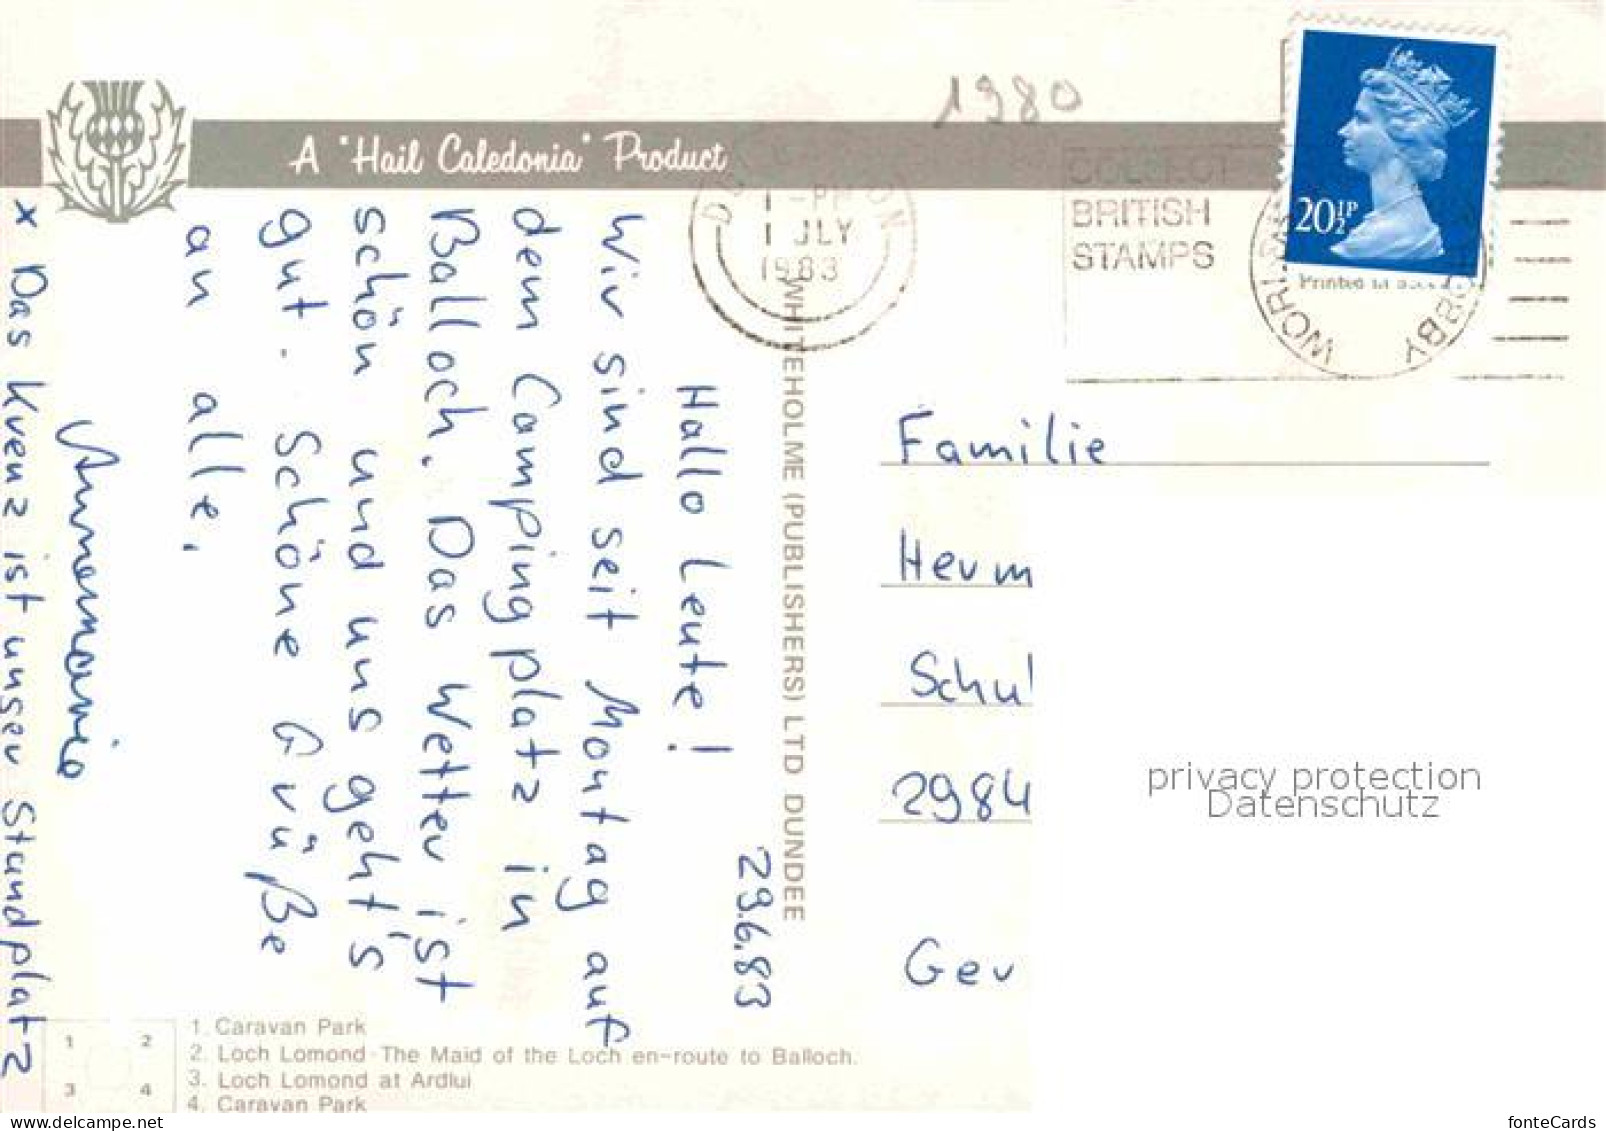 1980
A "Hail Caledonia" Product
1 - PM
1 JLY
1983
COLLECT
BRITISH
STAMPS
WORLD'S
HOBBY
20½P
29.6.83
Hallo Leute!
Wir sind seit Montag auf
dem Campingplatz in
Balloch. Das Wetter ist
schön und uns geht's
gut. Schöne Grüße
an alle,
Annemarie
x Das Kreuz ist unser Standplatz
WHITEHOLME (PUBLISHERS) LTD DUNDEE
Familie
Herm
Schul
2984
Gev
privacy protection
Datenschutz
1 2
3 4
1. Caravan Park
2. Loch Lomond - The Maid of the Loch en-route to Balloch.
3. Loch Lomond at Ardlui
4. Caravan Park
delcampe.net
fonteCards